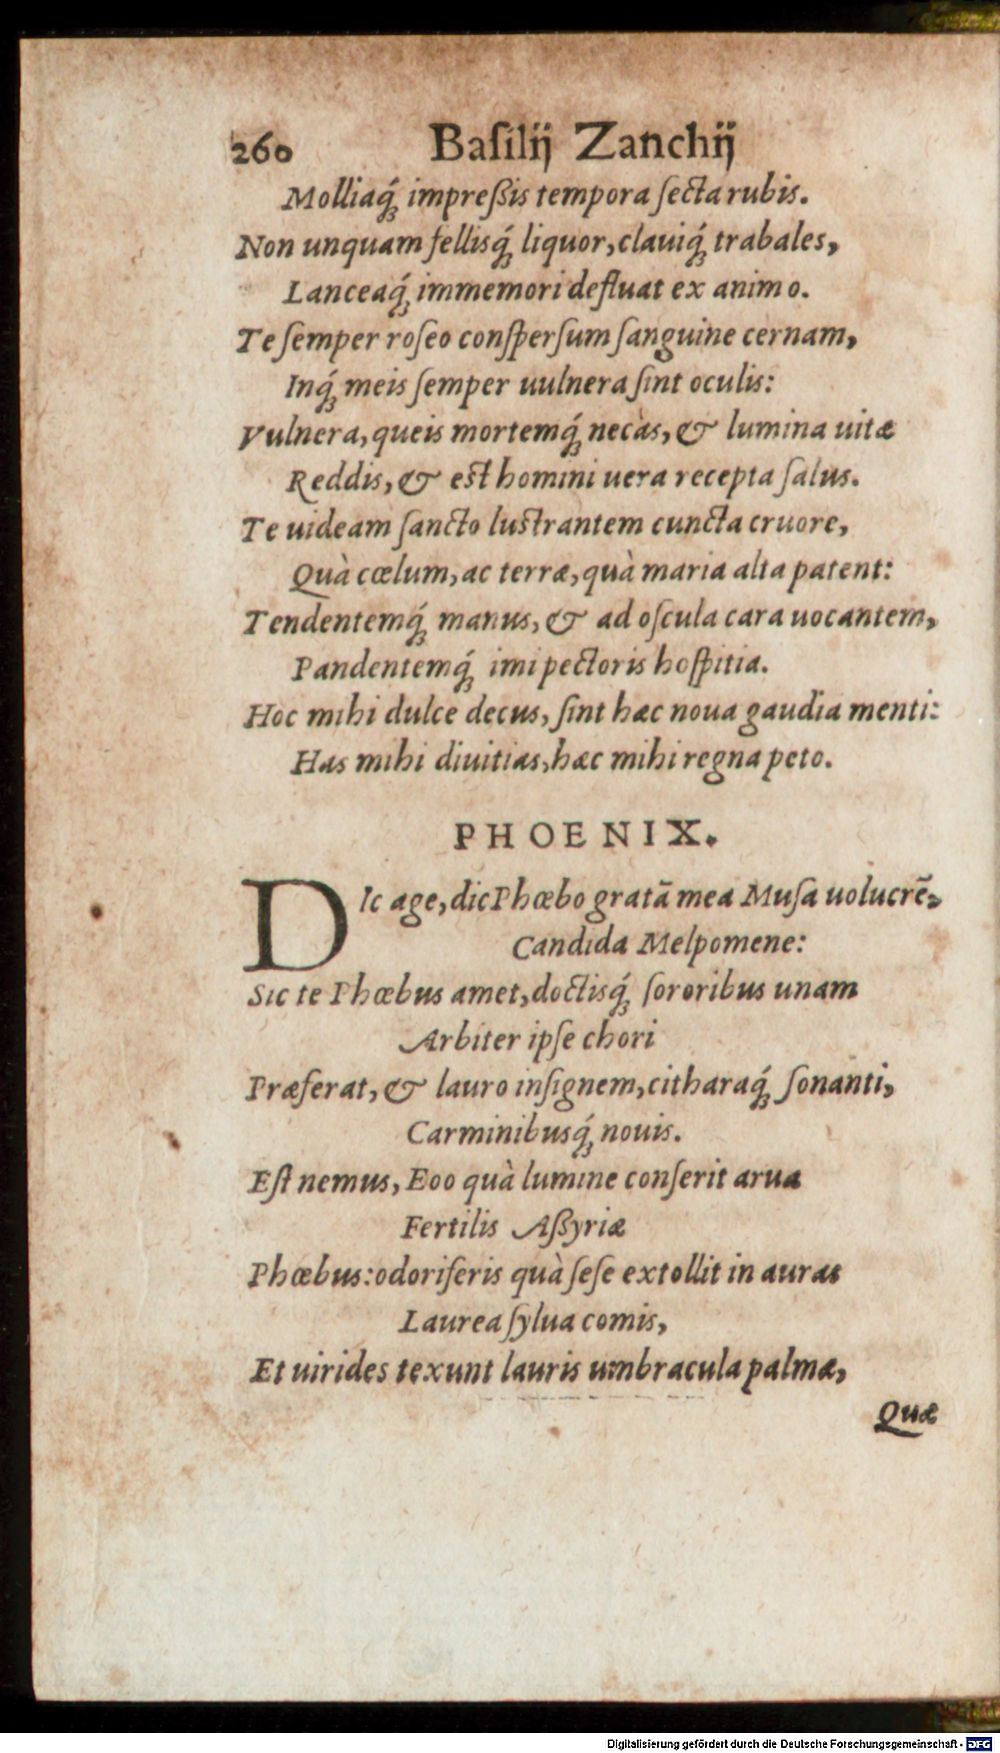 260 Baſilij Zanchij
Molliaq́; impreßis tempora ſecta rubis.
Non unquam fellisq́; liquor, clauiq́; trabales,
Lanceaq́; immemori defluat ex animo.
Te ſemper roſeo conſperſum ſanguine cernam,
Inq́; meis ſemper uulnera ſint oculis:
Vulnera, queis mortemq́; necàs, & lumina uitæ
Reddis, & est homini uera recepta ſalus.
Te uideam ſancto lustrantem cuncta cruore,
Quà cœlum, ac terræ, quà maria alta patent:
Tendentemq́; manus, & ad oſcula cara uocantem,
Pandentemq́; imi pectoris hoſpitia.
Hoc mihi dulce decus, ſint hæc noua gaudia menti:
Has mihi diuitias, hæc mihi regna peto.
PHOENIX.
DIc age, dic Phœbo gratā mea Muſa uolucrē,
Candida Melpomene:
Sic te Phœbus amet, doctisq́; ſororibus unam
Arbiter ipſe chori
Præferat, & lauro inſignem, citharaq́; ſonanti,
Carminibusq́; nouis.
Eſt nemus, Eoo quà lumine conſerit arua
Fertilis Aßyriæ
Phœbus: odoriferis quà ſeſe extollit in auras
Laurea ſylua comis,
Et uirides texunt lauris umbracula palmæ,
Quæ
Digitalisierung gefördert durch die Deutsche Forschungsgemeinschaft - DFG